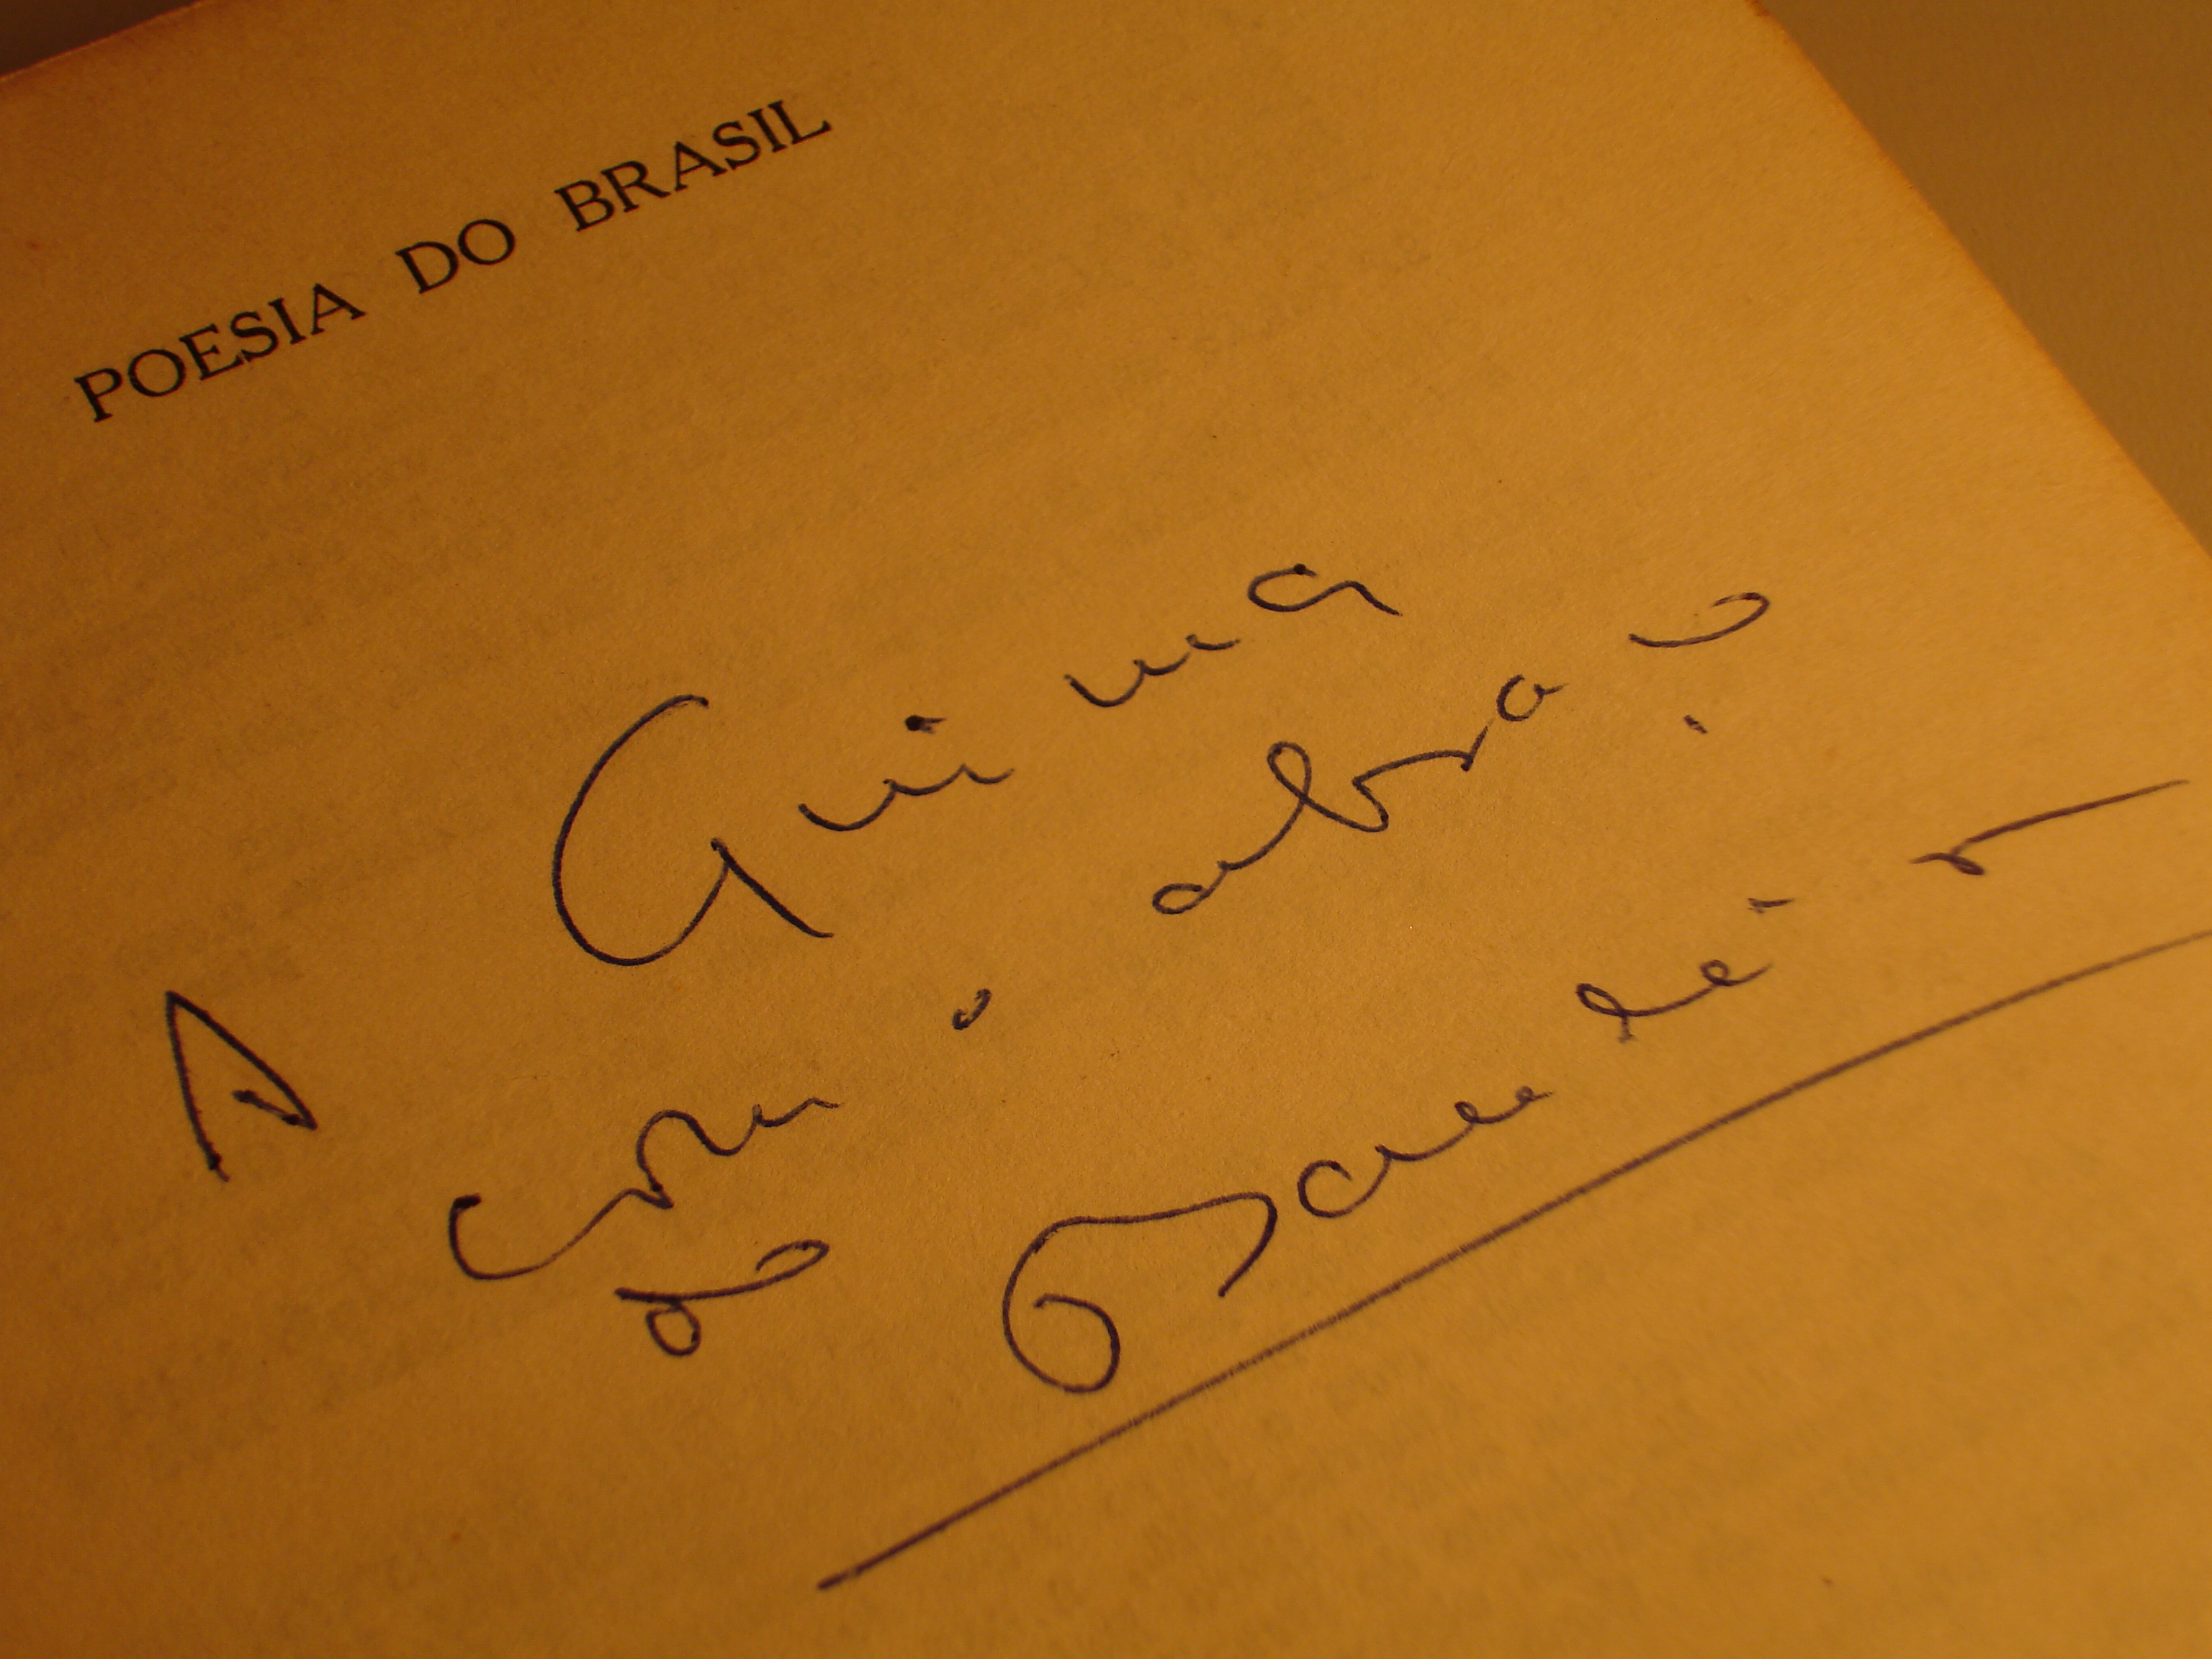 POESIA DO BRASIL
A Guima
com o abraço
do Bandeira